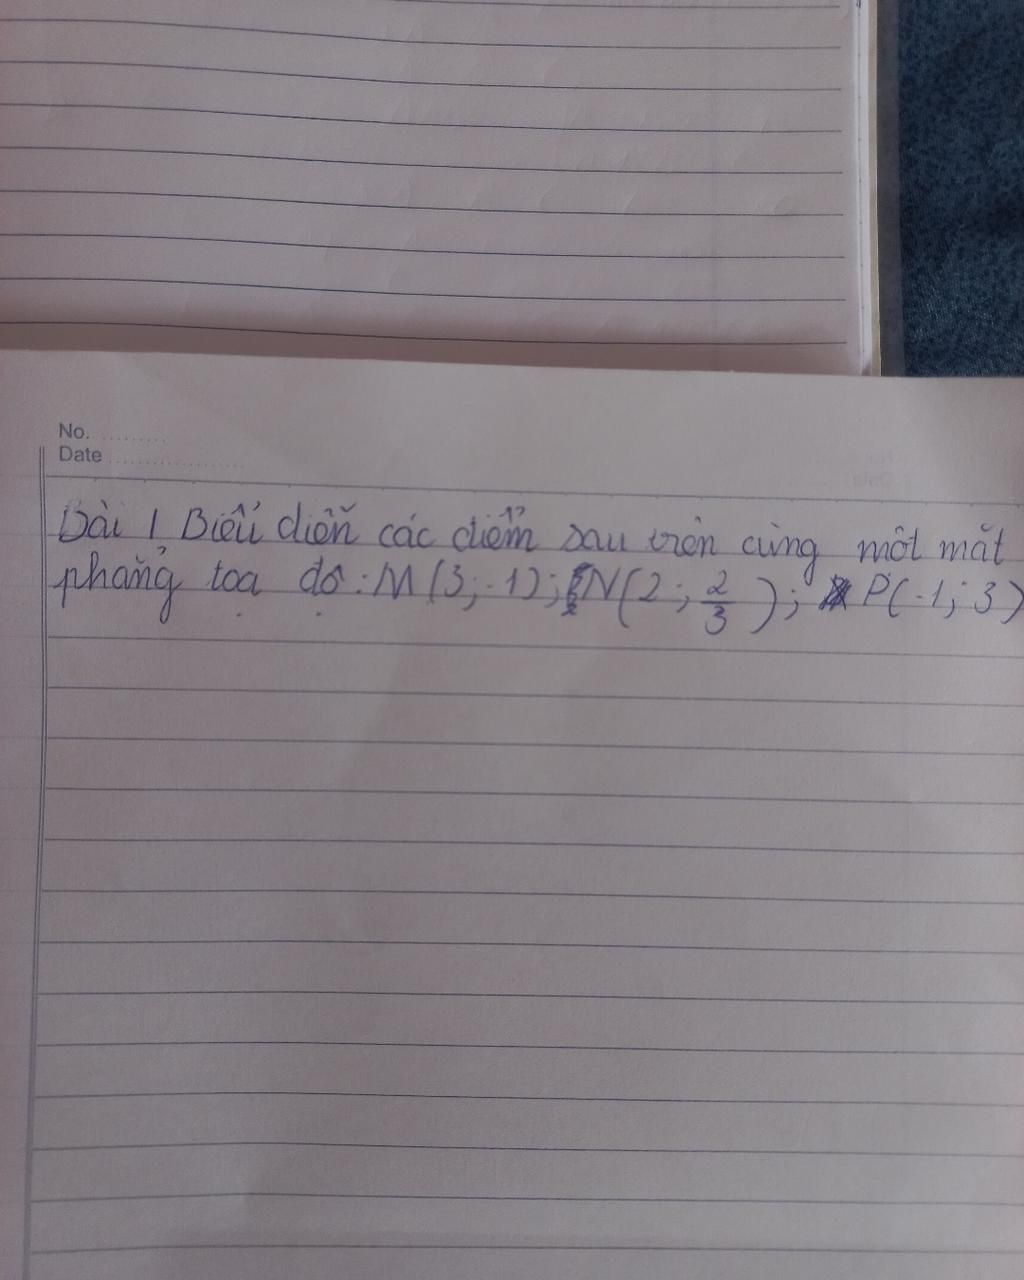 No. .........
Date ...................
Bài 1 Biểu diễn các điểm sau trên cùng một mặt
phẳng tọa độ: M(3; -1); N(2; 2/3); P(-1; 3)